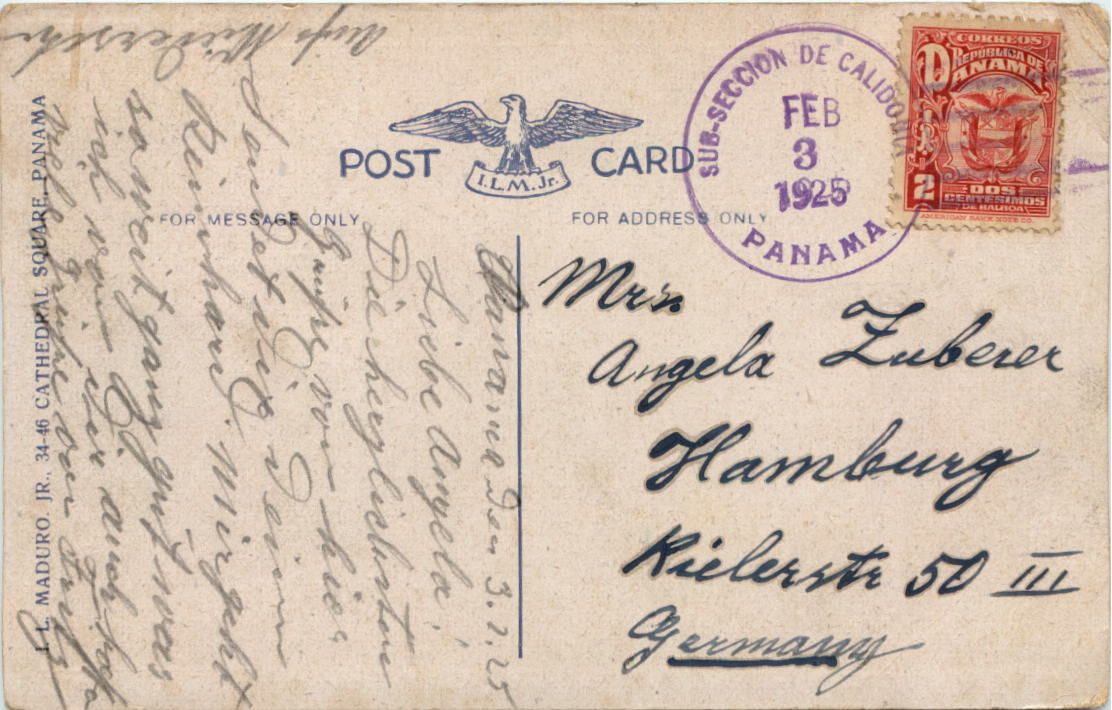 POST CARD
I.L.M. Jr.
FOR MESSAGE ONLY
FOR ADDRESS ONLY
SUB-SECCION DE CALIDONIA
FEB
3
1925
PANAMA
CORREOS
REPUBLICA DE
PANAMA
2
DOS
CENTESIMOS
DE BALBOA
AMERICAN BANK NOTE CO.
I. L. MADURO. JR., 34-46 CATHEDRAL SQUARE, PANAMA
Panama den 3.2.25
Liebe Angela!
Die herzlichsten
Grüße von hier
sendet dir dein
Reinhard. Mir geht
so weit ganz gut was
ich von dir auch hoffe
Viele Grüße an
Auf Wiederseh
Mrs
Angela Zuberer
Hamburg
Kielerstr 50 III
Germany